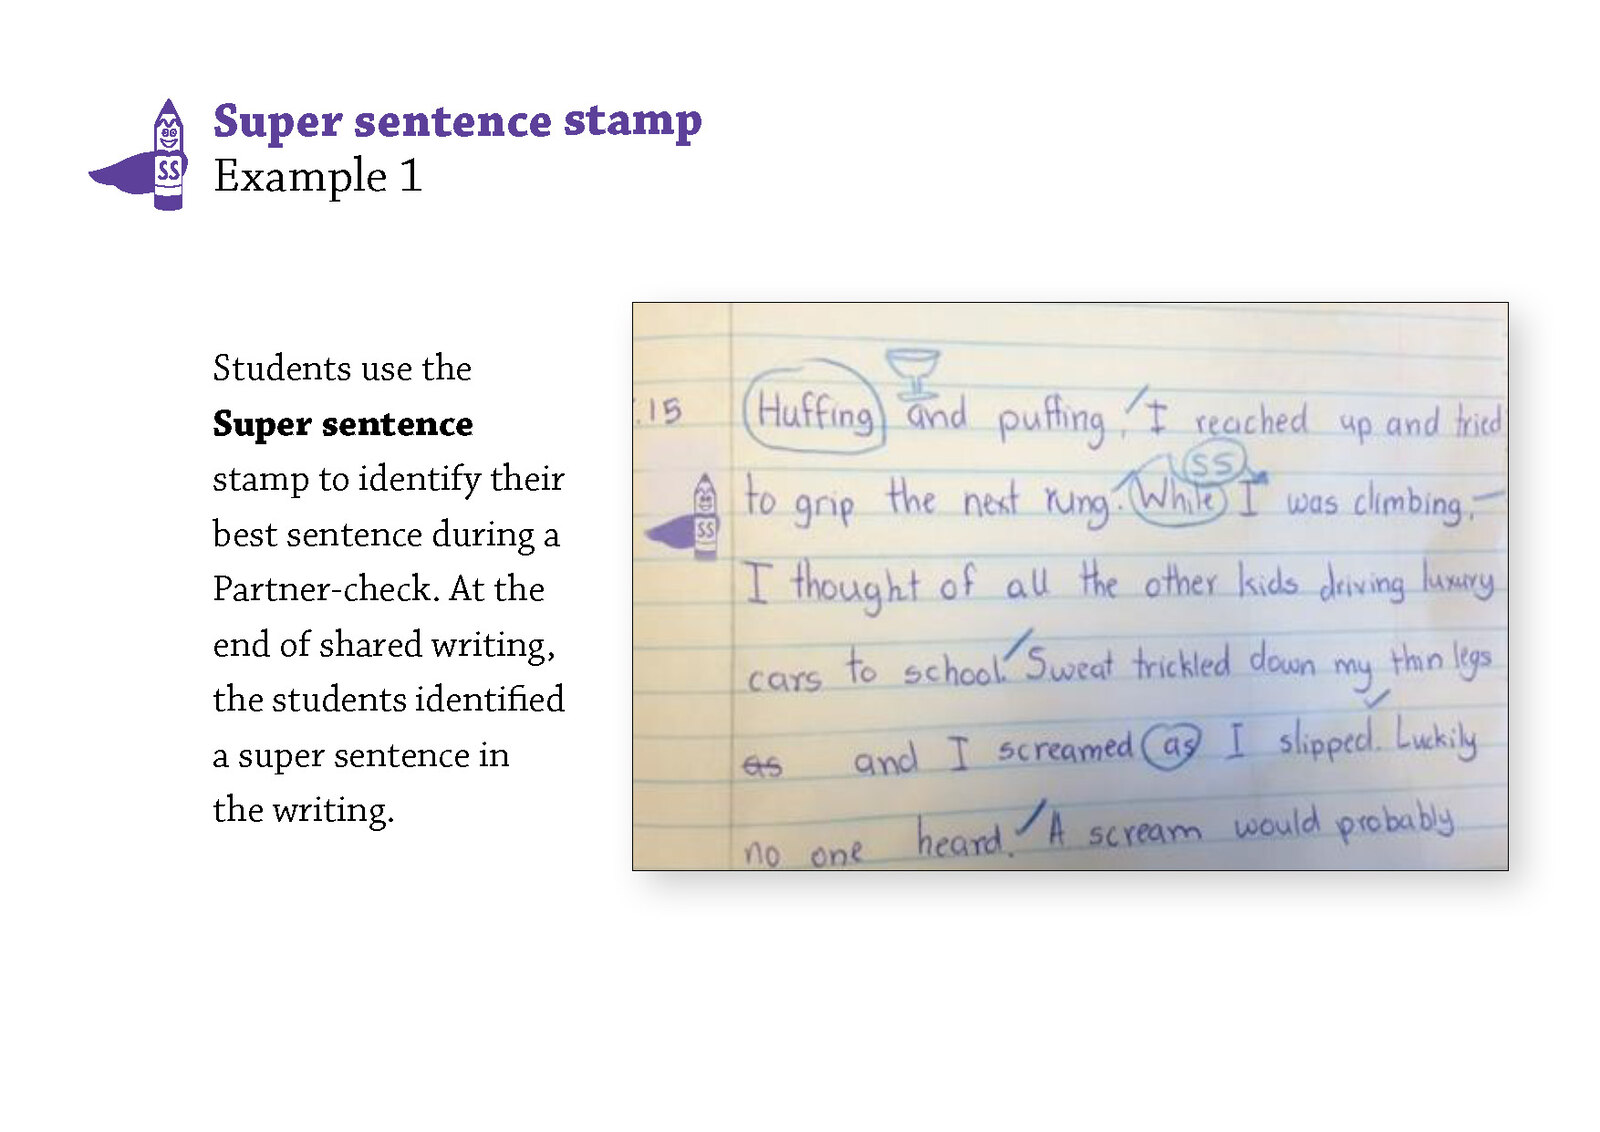 Super sentence stamp
SS
Example 1
Students use the
Super sentence
stamp to identify their
best sentence during a
Partner-check. At the
end of shared writing,
the students identified
a super sentence in
the writing.
.15 Huffing and puffing, I reached up and tried
SS
to grip the next rung. While I was climbing,
SS
I thought of all the other kids driving luxury
cars to school. Sweat trickled down my thin legs
as and I screamed as I slipped. Luckily
no one heard. A scream would probably